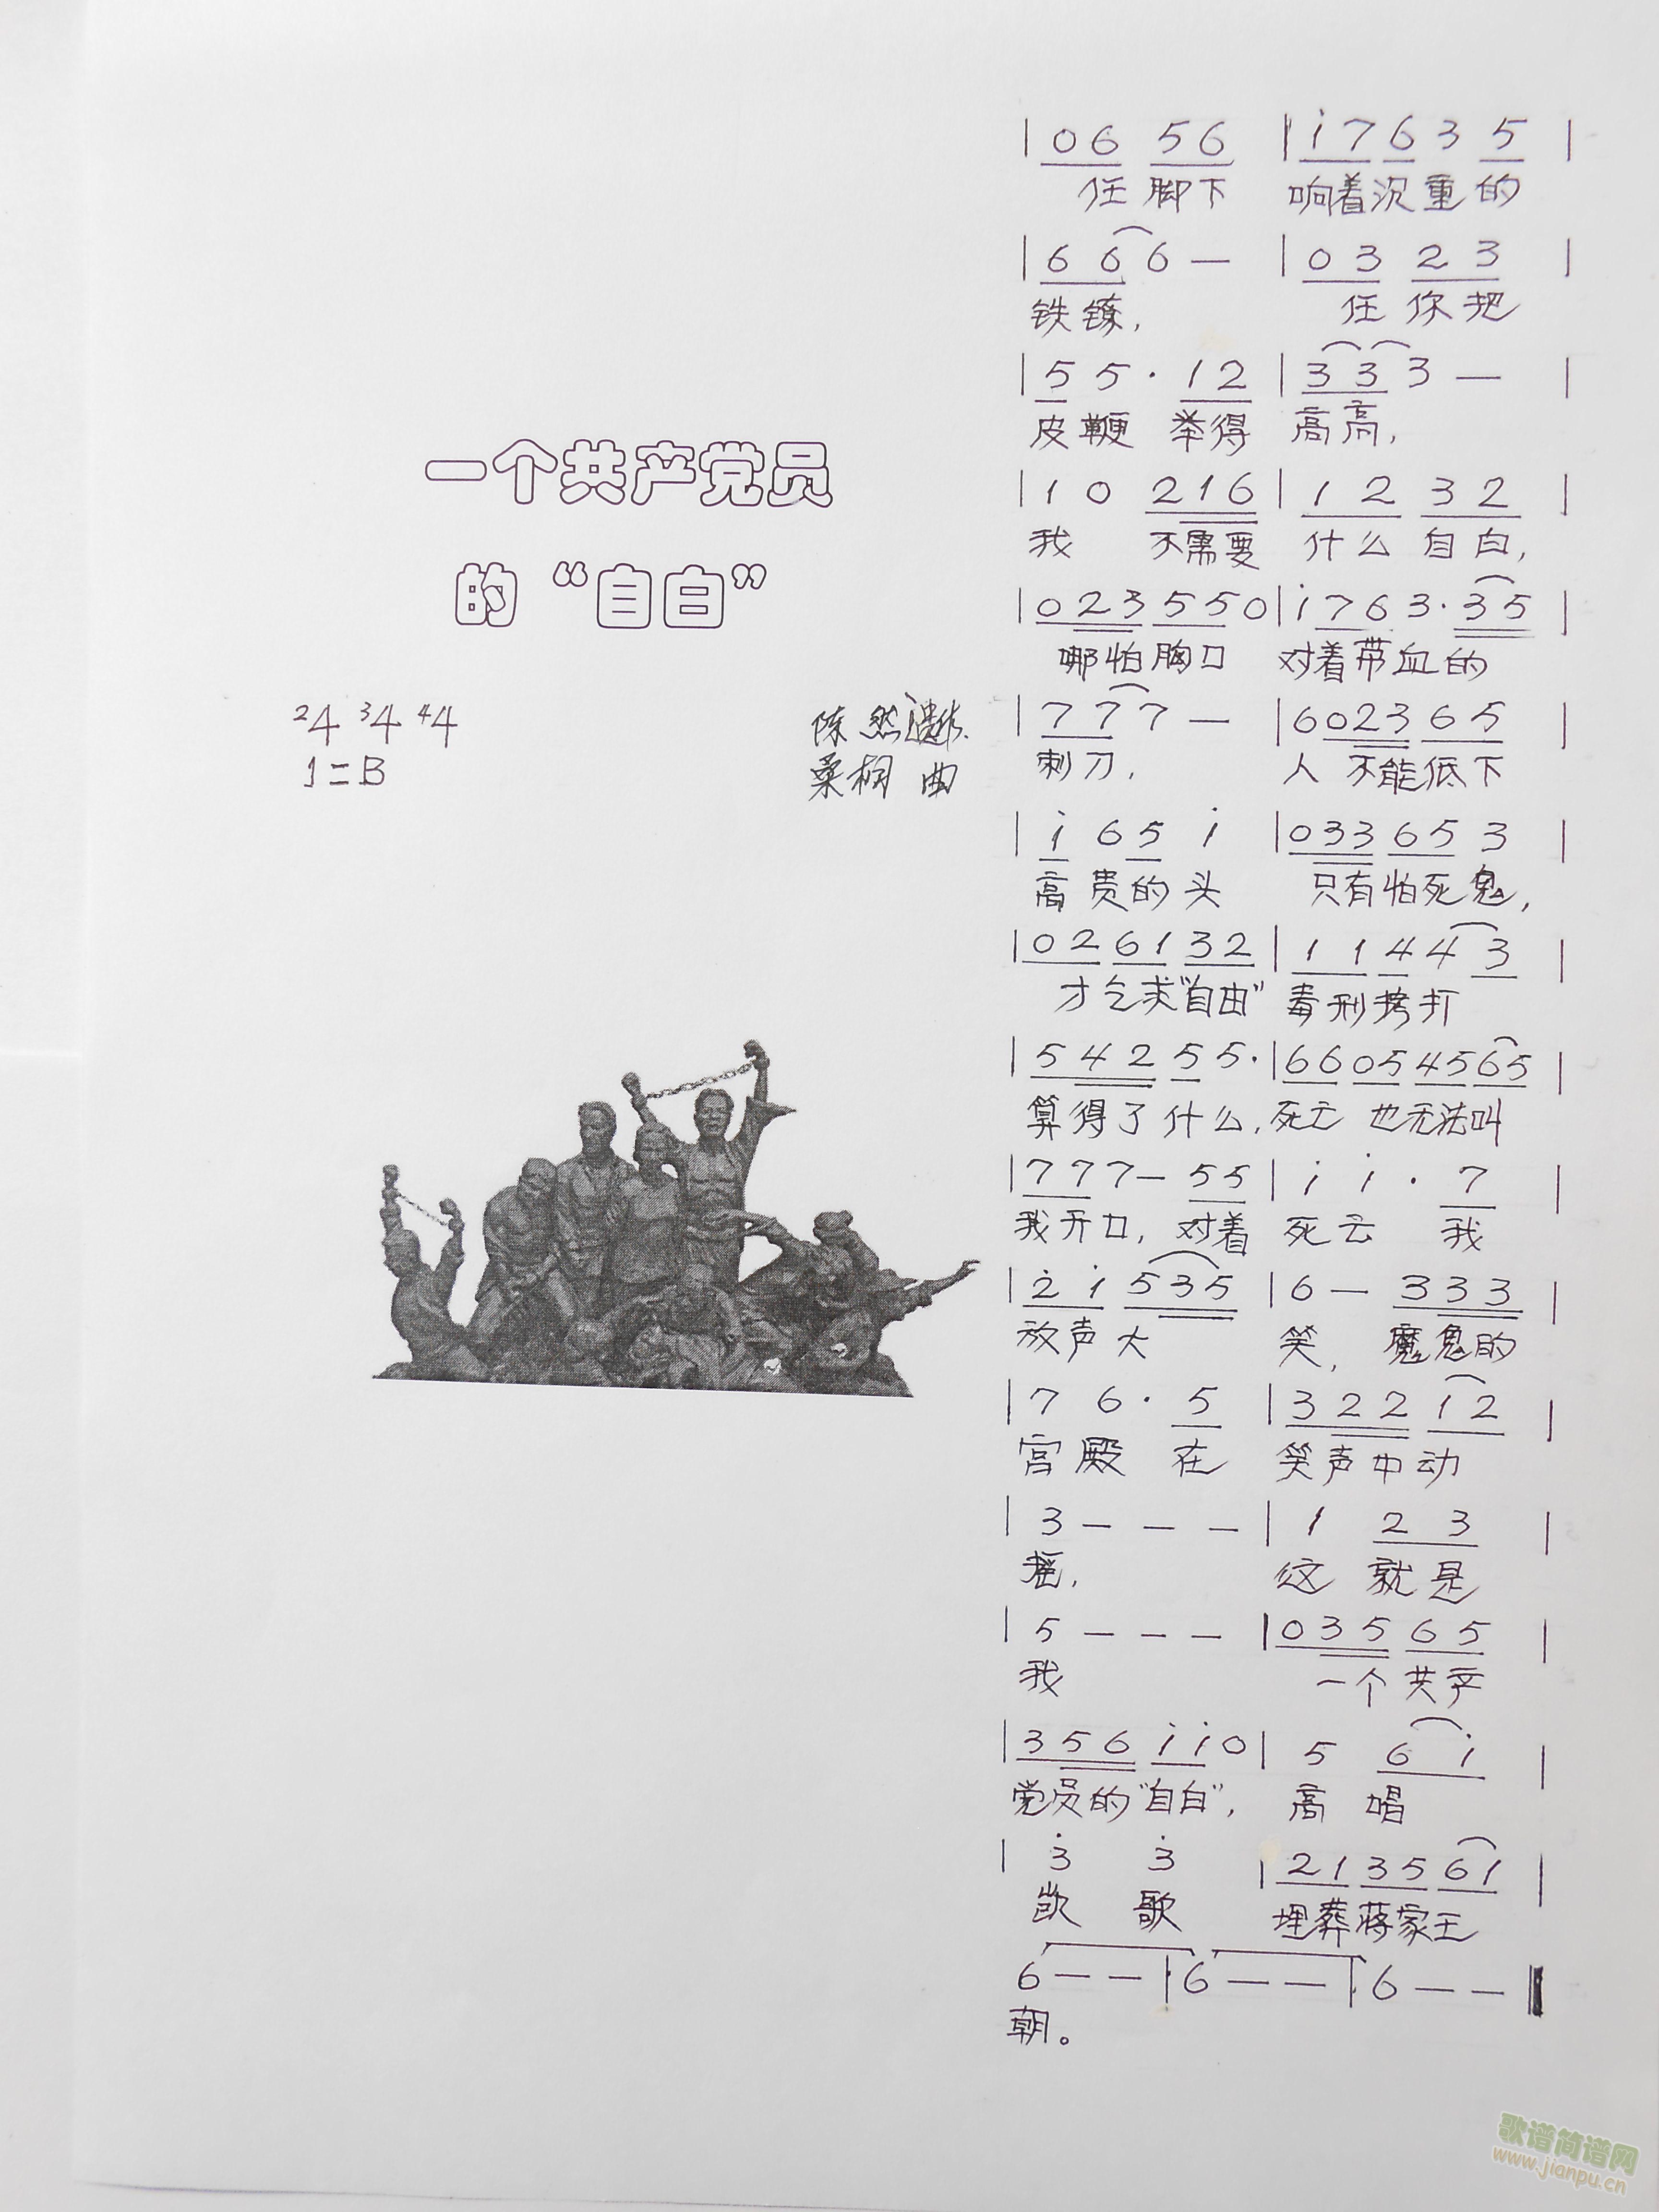 一个共产党员
的“自白”
2/4 3/4 4/4
1=B
陈然遗作
桑桐 曲
|06 56 |i763 5 |
任脚下 响着沉重的
|6 66 — |03 23 |
铁镣, 任你把
|5 5· 12 |333 — |
皮鞭 举得 高高,
|1 0 216 |12 32 |
我 不需要 什么 自白,
|023 550|i763·35 |
哪怕胸口 对着带血的
|777 — |6023 65 |
刺刀, 人 不能低下
|i 65 i |033 65 3 |
高贵的头 只有怕死鬼,
|02 61 32 |11443 |
才乞求“自由” 毒刑拷打
|542 55·|6605 4565 |
算得了什么,死亡 也无法叫
|777— 55 |i i · 7 |
我开口, 对着 死亡 我
|2 i 535 |6— 333 |
放声大 笑, 魔鬼的
|7 6· 5 |322 12 |
宫殿 在 笑声中动
|3— — — |1 23 |
摇, 这 就是
|5 — — — |035 65 |
我 一个共产
|356 ii0| 5 6i |
党员的“自白”, 高 唱
| 3 3 |21 35 61 |
凯 歌 埋葬蒋家王
6— — —|6— — —|6— — ‖
朝。
歌谱简谱网
www.jianpu.cn